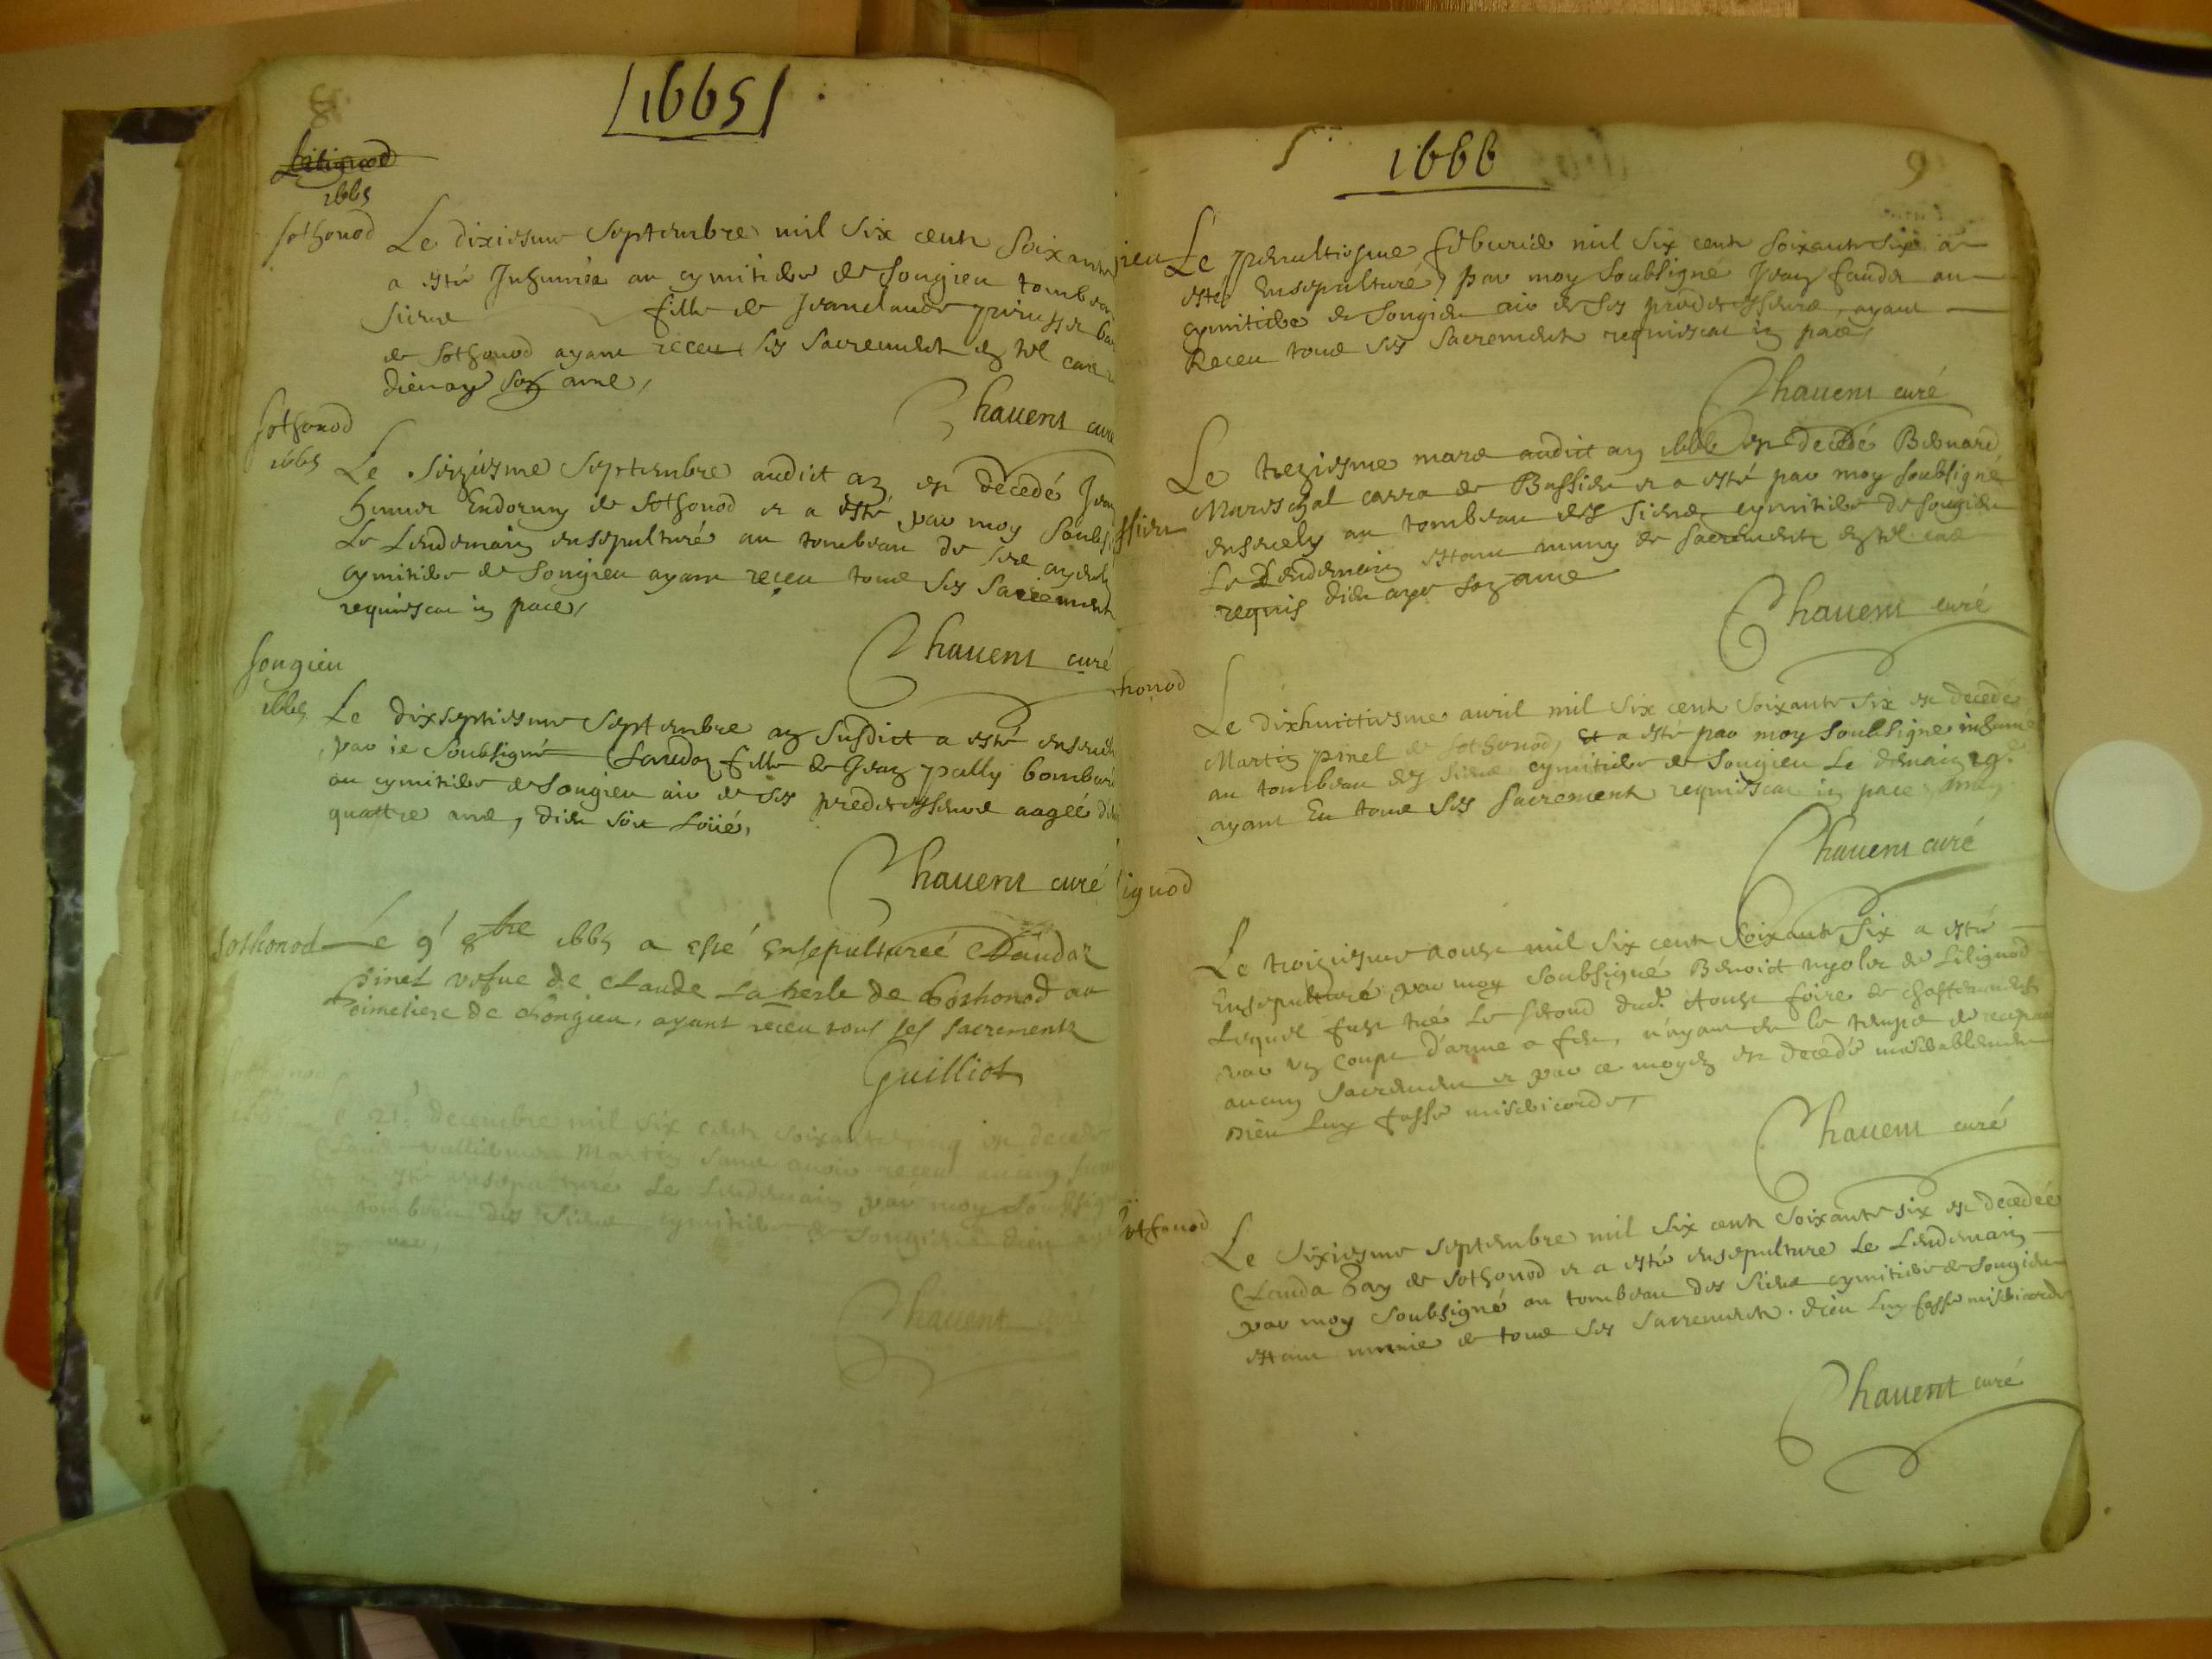 8
1665
Lilignod
1665
Sothonod
Le dixiesme Septembre mil six cent soixante
a esté Inhumée au cymitiere de Songieu tombeau
siens fille de Jeanclaude
de Sothonod ayant receu ses sacrements en tel cas
Dieu aye son ame,
Chauent curé
Sothonod
1665
Le Septembre audict an est decedé Jean
de Sothonod et a esté par moy soubs
le lendemain ensepulturé au tombeau de
cymitiere de Songieu ayant receu tous ses sacrements
requiescat in pace,
Chauent curé
Songieu
1665
Le dixseptiesme Septembre an susdict a esté enseueli
par ie soubsigné Claudaz fille de Jean pally
au cymitiere de Songieu aiv de ses predecesseurs aagée
quattre ans, Dieu soit Loüé,
Chauent curé
Sothonod
Le 9e 8bre 1665 a esté ensepulturée Claudaz
pinet vefue de Claude La de Sothonod au
cimetiere de Songieu, ayant receu tous ses sacrements
Guilliot
Le 21e decembre mil six cent soixante cinq est decedé
Claude Martin sans auoir receu aucun
et a esté ensepulturé Le lendemain par moy soubsigné
au tombeau des siens cymitiere de Songieu dieu aye
son ame,
Chauent curé
1666
9
gieu
Le penultiesme feburier mil six cent soixante six a
esté Ensepulturé par moy soubsigné Jean au
cymitiere de Songieu aiv de ses predecesseurs, ayant
Receu tous ses sacrements requiescat in pace,
Chauent curé
ssieu
Le treziesme mars audict an 1666 est decedé Bernard
Mareschal carra de Bassieu et a esté par moy soubsigné
enseuely au tombeau des siens cymitiere de Songieu
Le Lendemain estant muny de sacrements en tel cas
requis Dieu aye son ame
Chauent curé
honod
Le dixhuictiesme auril mil six cent soixante six est decedé
Martin pinet de Sothonod, Et a esté par moy soubsigné inhumé
au tombeau des siens cymitiere de Songieu Le demain 19e
ayant Eu tous ses sacrement requiescat in pace amen
Chauent curé
lignod
Le troiziesme aoust mil six cent soixante six a esté
Ensepulturé par moy soubsigné Benoict de Lilignod
Lequel fust tué le second dud. Aoust foire de
par un coupt d'arme a feu, n'ayant eu le temps de
aucun sacrement et par ce moyen est decedé miserablement
Dieu Luy fasse misericorde,
Chauent curé
othonod
Le sixiesme septembre mil six cent soixante six est decedée
Clauda de Sothonod et a esté ensepulture Le Lendemain
par moy soubsigné au tombeau des siens cymitiere de Songieu
estant munie de tous ses sacrements. Dieu Luy fasse misericorde
Chauent curé